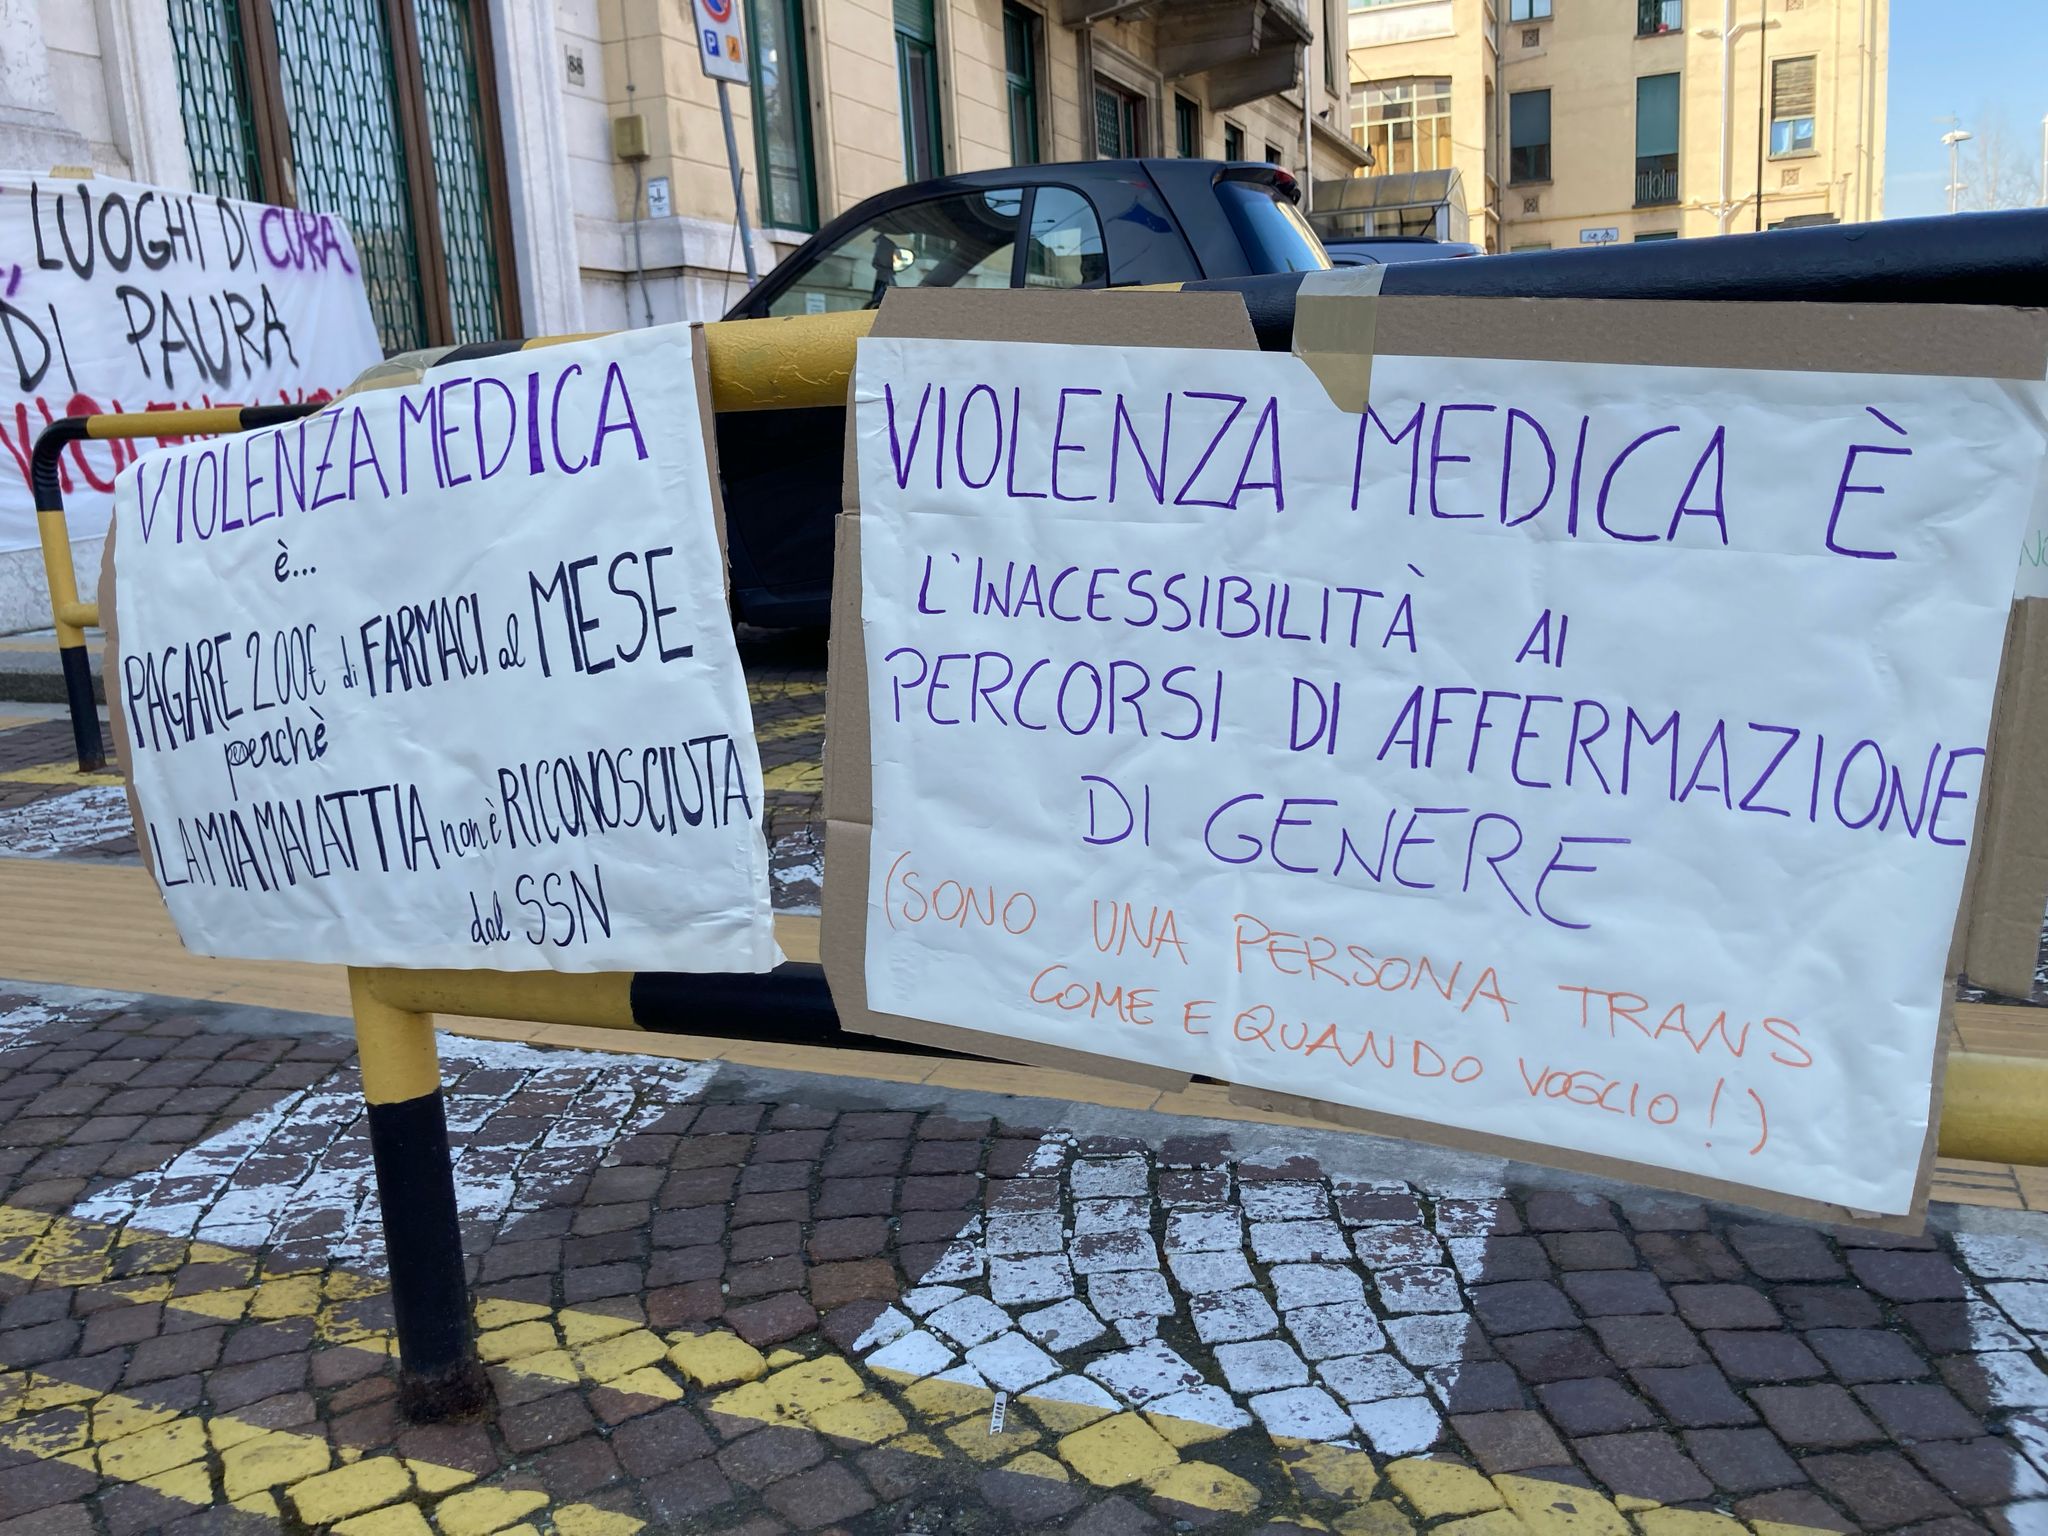 LUOGHI DI CURA
DI PAURA
VIOLENZA MEDICA
è...
PAGARE 200€ di FARMACI al MESE
perchè
LA MIA MALATTIA non è RICONOSCIUTA
dal SSN
VIOLENZA MEDICA È
L'INACESSIBILITÀ AI
PERCORSI DI AFFERMAZIONE
DI GENERE
(SONO UNA PERSONA TRANS
COME E QUANDO VOGLIO!)
88
P